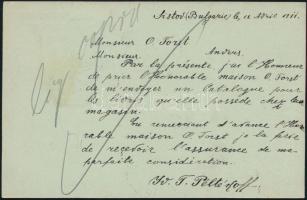 Sistov (Bulgarie) le 12 Avril
Monsieur O. Forst
Monsieur. Anvers.
Par la présente j'ai l'Honneur
de prier l'honorable maison O. Forst
de m'envoyer un Catalogue pour
les livres quelle possède chez
magasin.
En remerciant d'avance l'Hono
rable maison O. Forst je la prie
de recevoir l'assurance de ma
parfaite considération.